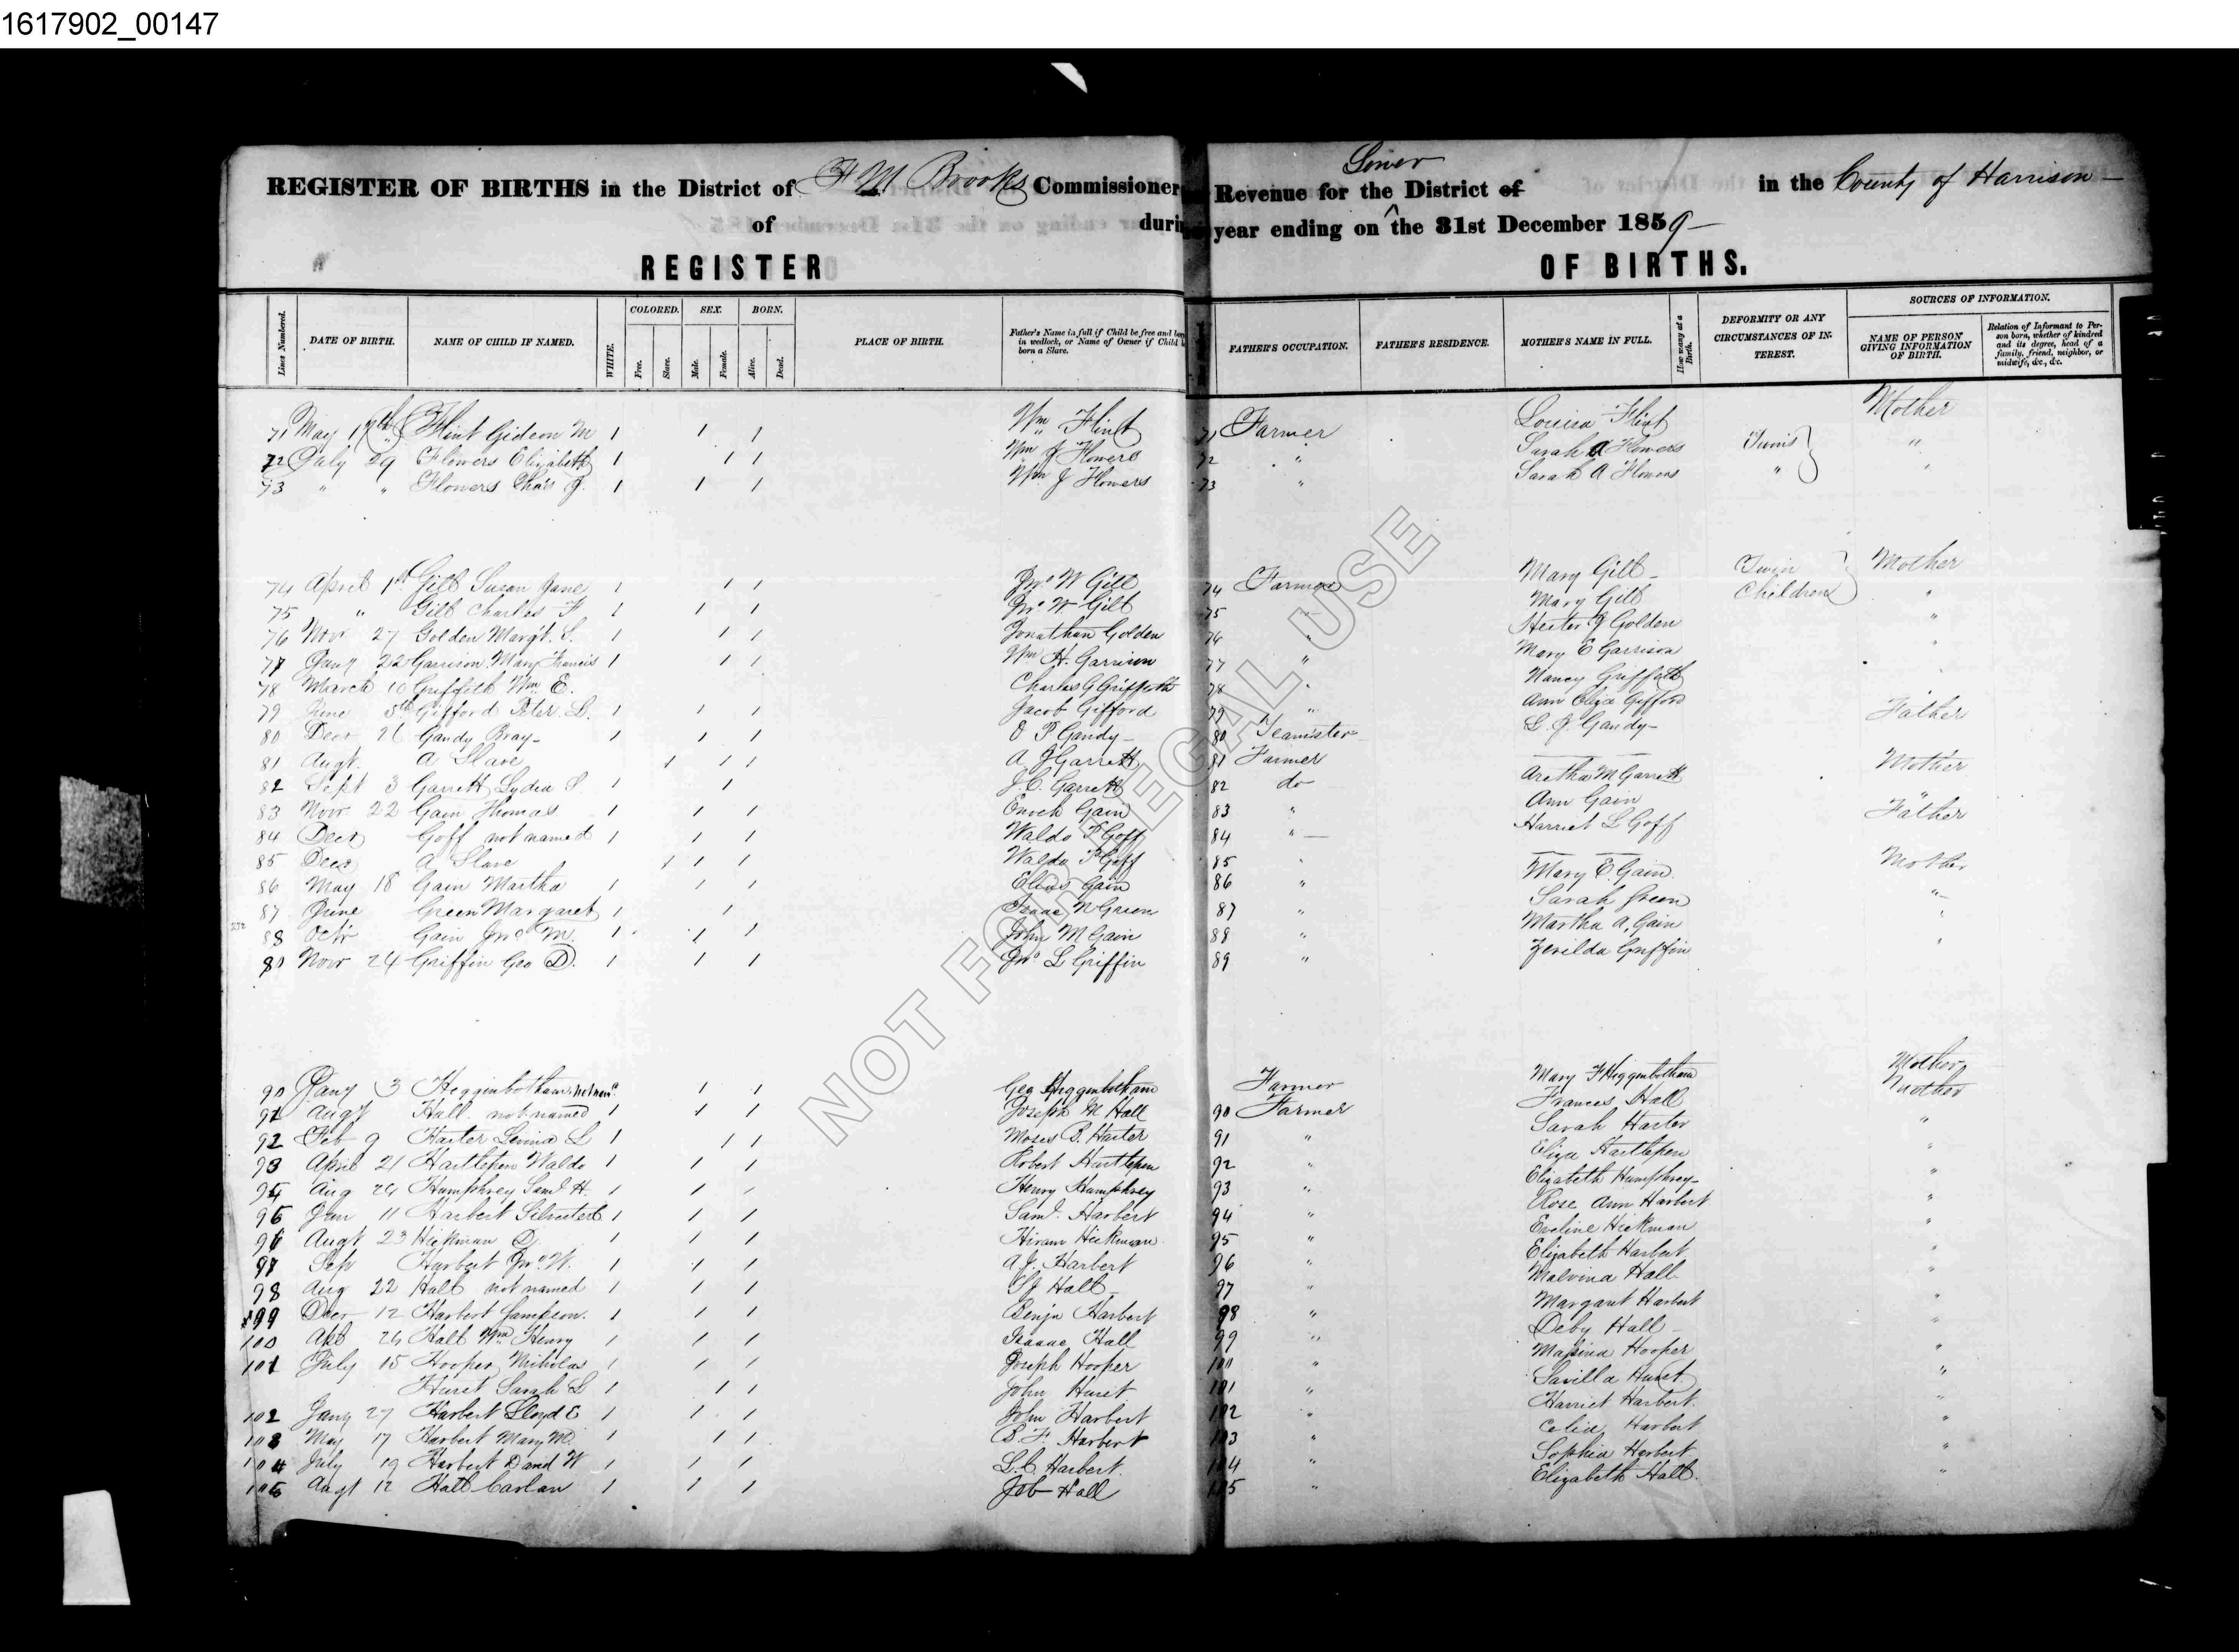 1617902_00147
REGISTER OF BIRTHS in the District of F M Brooks Commissioner Revenue for the District of Lower in the County of Harrison
of during year ending on the 31st December 1859
REGISTER OF BIRTHS.
Lines Numbered. DATE OF BIRTH. NAME OF CHILD IF NAMED. WHITE. COLORED. Free. Slave. SEX. Male. Female. BORN. Alive. Dead. PLACE OF BIRTH. Father's Name in full if Child be free and born in wedlock, or Name of Owner if Child born a Slave. FATHER'S OCCUPATION. FATHER'S RESIDENCE. MOTHER'S NAME IN FULL. How many at a Birth. DEFORMITY OR ANY CIRCUMSTANCES OF INTEREST. SOURCES OF INFORMATION. NAME OF PERSON GIVING INFORMATION OF BIRTH. Relation of Informant to Person born, whether of kindred and its degree, head of a family, friend, neighbor, or midwife, &c., &c.
71 May 17th Flint Gideon M 1 1 1 Wm Flint 71 Farmer Louisa Flint Mother
72 July 29 Flowers Elizabeth 1 1 1 Wm J Flowers 72 " Sarah A Flowers Twins "
73 " " Flowers Chas J. 1 1 1 Wm J Flowers 73 " Sarah A Flowers " "
74 April 1st Gill Susan Jane 1 1 1 Jno W Gill 74 Farmer Mary Gill Twin Mother
75 " Gill Charles F 1 1 1 Jno W Gill 75 " Mary Gill Children "
76 Novr 27 Golden Margt. S. 1 1 1 Jonathan Golden 76 " Hester J Golden "
77 Jany 22 Garrison Mary Francis 1 1 1 Wm H. Garrison 77 " Mary E Garrison "
78 March 10 Griffith Wm E. Charles G Griffith 78 " Nancy Griffith "
79 June 5th Gifford Peter L. 1 1 1 Jacob Gifford 79 " Ann Eliza Gifford
80 Decr 26 Gandy Bray 1 1 1 O P Gandy 80 Teamster L. J. Gandy Father
81 Augt. A Slave 1 1 1 A J Garrett 81 Farmer
82 Sept 3 Garrett Lydia S 1 1 J. C. Garrett 82 do Aretha M Garrett Mother
83 Novr 22 Gain Thomas 1 1 1 Enoch Gain 83 " Ann Gain "
84 Decr Goff not named 1 1 1 Waldo P Goff 84 " Harriet L Goff Father
85 Decr A Slave 1 1 1 Waldo P Goff 85 "
86 May 18 Gain Martha 1 1 1 Elias Gain 86 " Mary E. Gain. Mother
87 June Green Margaret 1 1 Isaac N Green 87 " Sarah Green "
88 Octr Gain Jno M. 1 1 1 John M Gain 88 " Martha A. Gain "
89 Novr 24 Griffin Geo D. 1 1 1 Jno L Griffin 89 " Zerilda Griffin "
90 Jany 3 Heggenbotham 1 1 Geo Higgenbotham Farmer Mary F Higgenbotham Mother
91 Augt Hall not named 1 1 1 Joseph M Hall 90 Farmer Frances Hall Mother
92 Feb 9 Harter L 1 1 1 Moses B. Harter 91 " Sarah Harter "
93 April 21 Hartlepen Waldo 1 1 1 Robert Hartlepen 92 " Eliza Hartlepen "
94 Aug 24 Humphrey Saml H. 1 1 1 Henry Humphrey 93 " Elizabeth Humphrey "
95 Jan 11 Harbert 1 1 1 Saml. Harbert 94 " Rose Ann Harbert "
96 Augt 23 Hickman D. 1 1 1 Hiram Hickman 95 " Eveline Hickman "
97 Sep Harbert Jno W. 1 1 1 A. J. Harbert 96 " Elizabeth Harbert "
98 Aug 22 Hall not named 1 1 1 Hall 97 " Malvina Hall "
99 Decr 12 Harbert Sampson. 1 1 1 Benja Harbert 98 " Margaret Harbert "
100 Apl 26 Hall Wm Henry 1 1 1 Isaac Hall 99 " Deby Hall "
101 July 15 Hooper Nicholas 1 1 1 Joseph Hooper 100 " Hooper "
Hurst Sarah L 1 1 1 John Hurst 101 " Savilla Hurst "
102 Jany 27 Harbert Lloyd E 1 1 1 John Harbert 102 " Harriet Harbert. "
103 May 17 Harbert Mary M. 1 1 1 B. F Harbert 103 " Celia Harbert "
104 July 19 Harbert David W 1 1 1 L. C. Harbert. 104 " Sophia Harbert "
105 Augt 12 Hall Carlan 1 1 1 Job Hall 105 " Elizabeth Hall. "
NOT FOR LEGAL USE